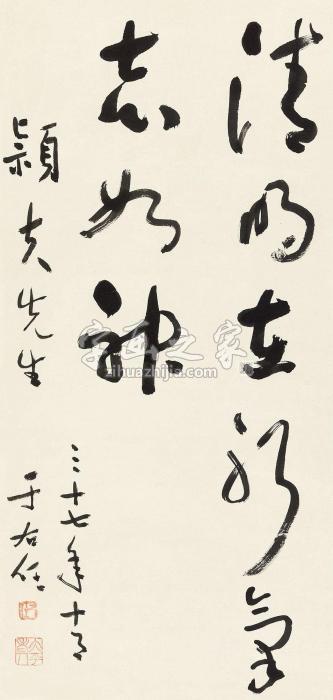 清明在躬氣
志如神
穎夫先生
三十七年十月
于右任
字画之家
zihuazhijia.com